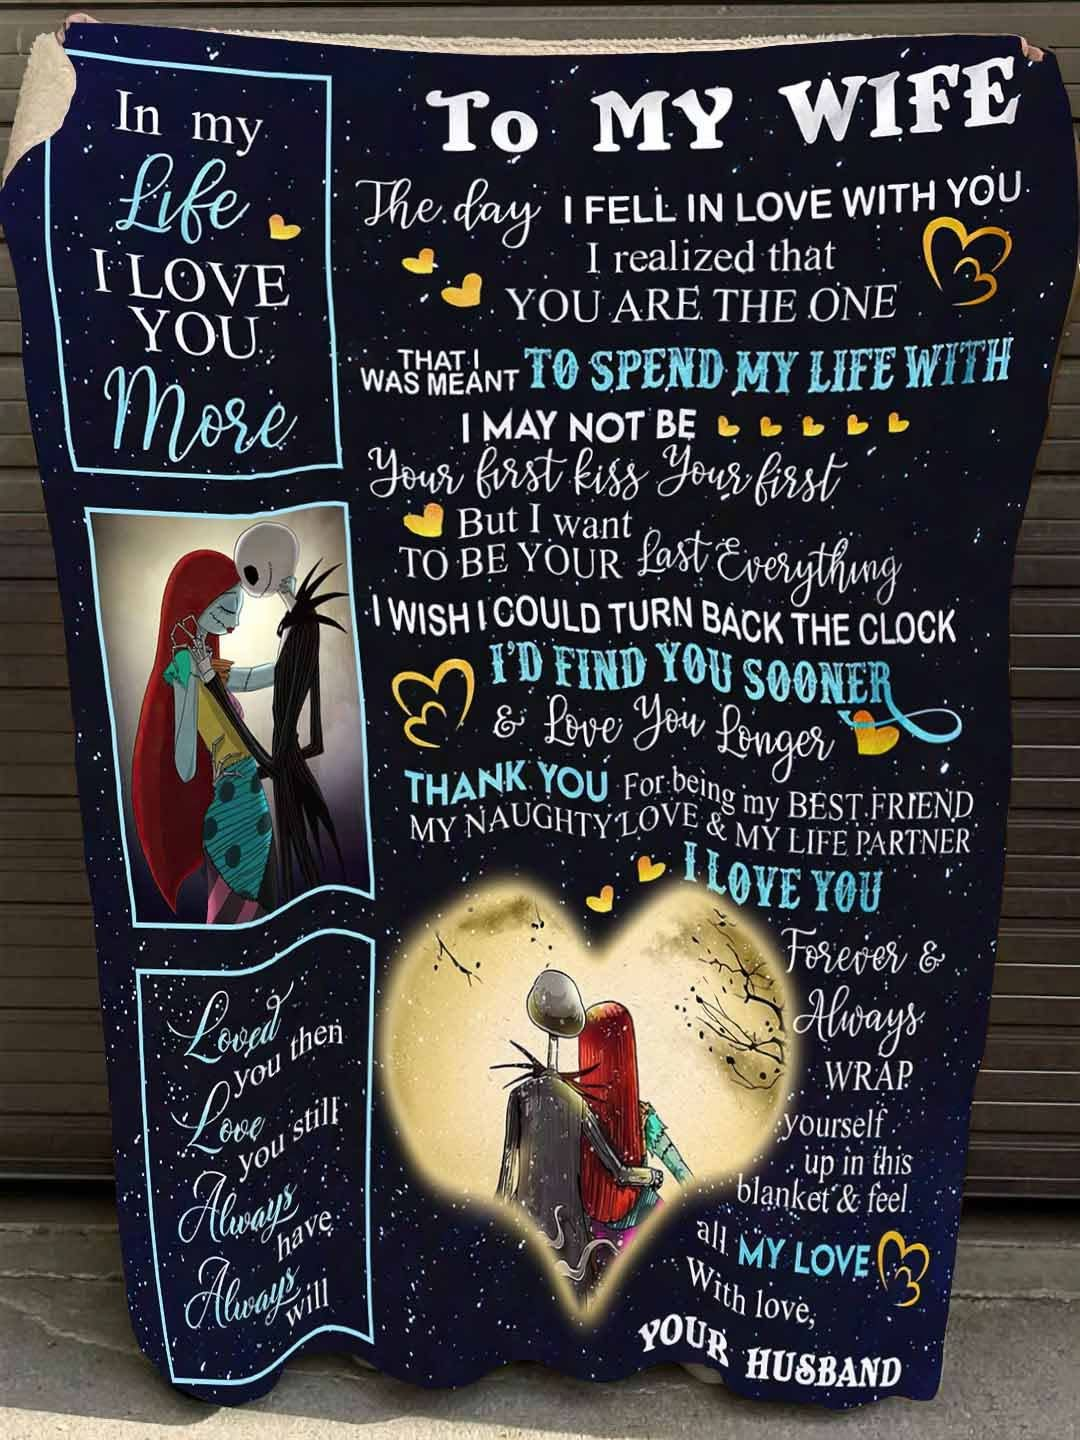 In my
Life
I LOVE
YOU
More
TO MY WIFE
The day I FELL IN LOVE WITH YOU
I realized that
YOU ARE THE ONE
THAT I
WAS MEANT TO SPEND MY LIFE WITH
I MAY NOT BE
Your first kiss Your first
But I want
TO BE YOUR Last Everything
I WISH I COULD TURN BACK THE CLOCK
I'D FIND YOU SOONER
& Love You Longer
THANK YOU For being my BEST FRIEND
MY NAUGHTY LOVE & MY LIFE PARTNER
I LOVE YOU
Forever &
Always
WRAP
yourself
up in this
blanket & feel
all MY LOVE
With love,
YOUR HUSBAND
Loved
you then
Love
you still
Always
have
Always
will